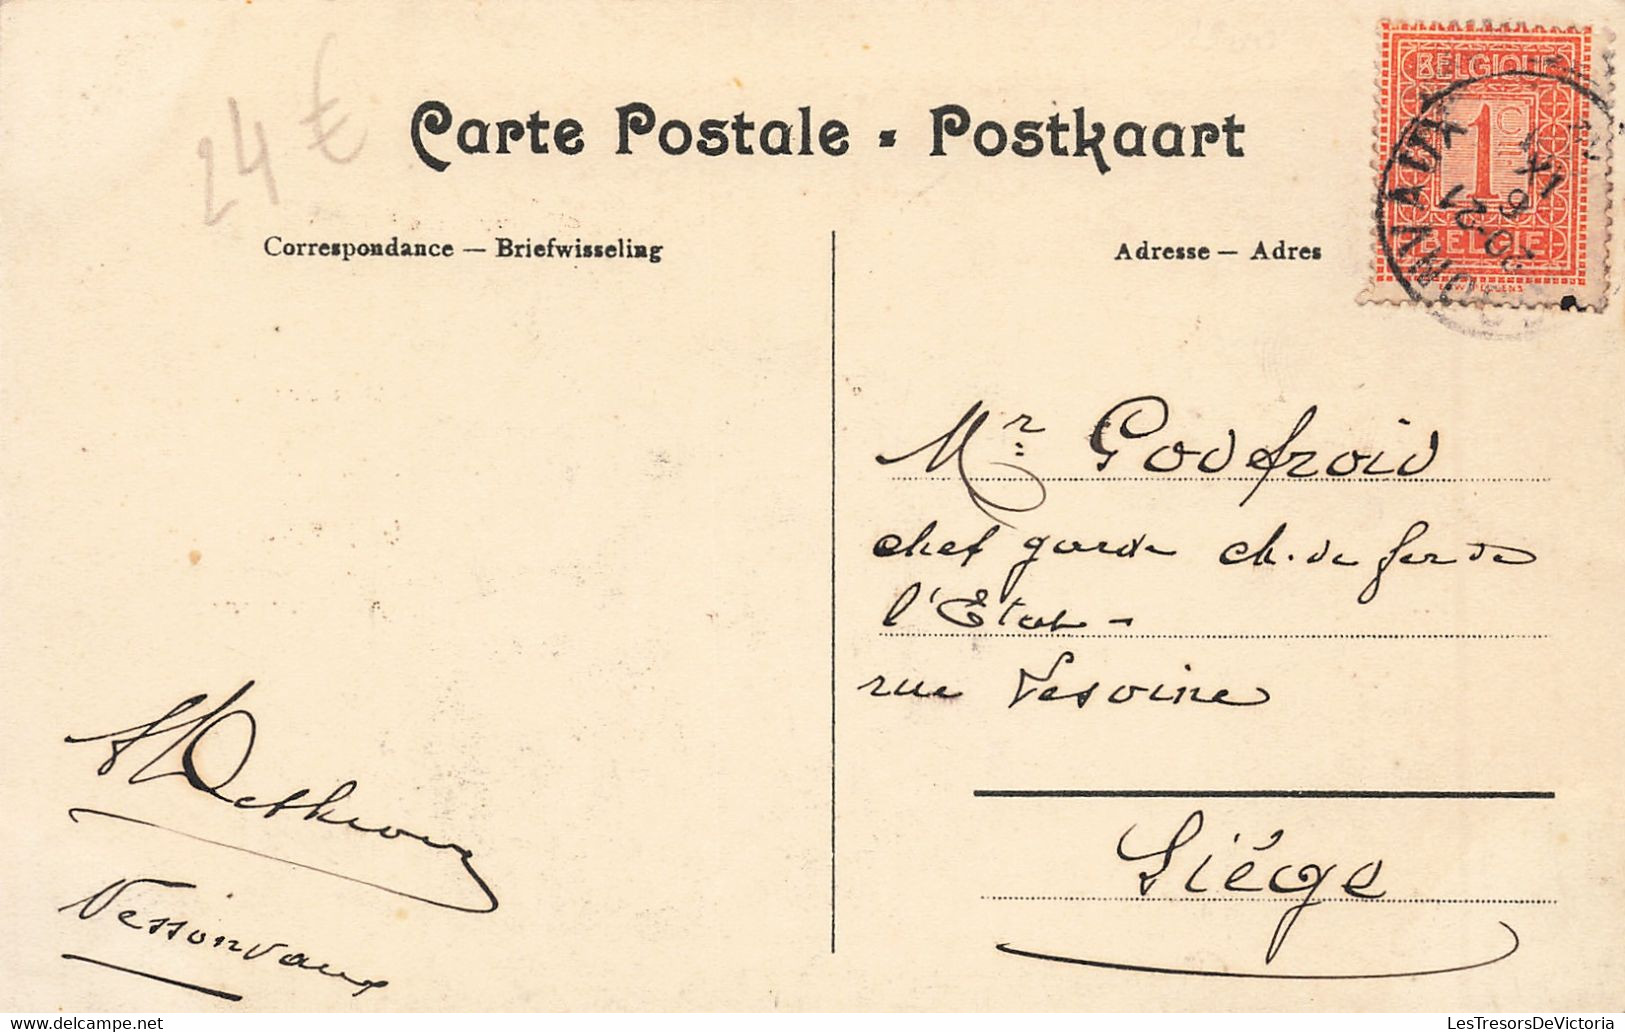 24 €
Carte Postale - Postkaart
BELGIQUE
1
BELGIË
Correspondance — Briefwisseling
Adresse — Adres
Mr Godfroid
chef garde ch. de fer de
l'Etat -
rue Vesoine
Liége
Nessonvaux
LesTresorsDeVictoria